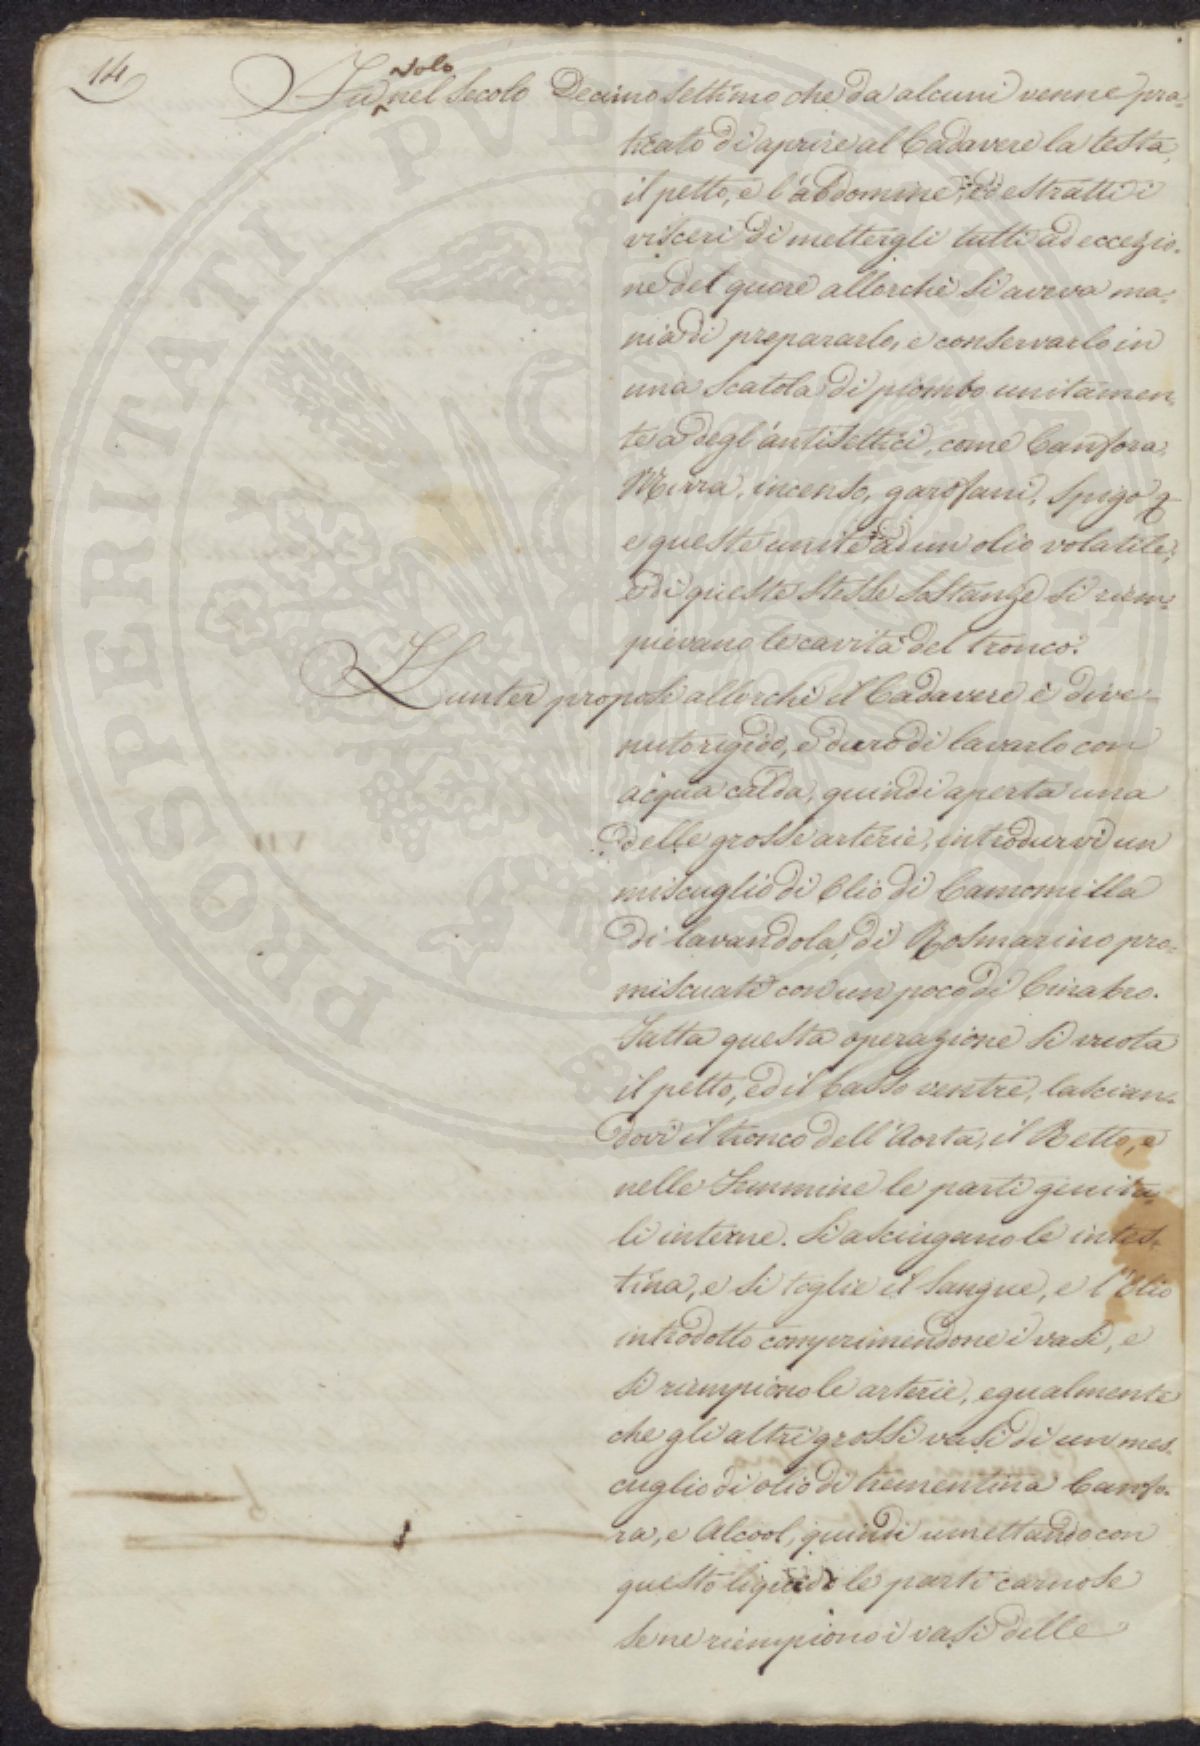 14
solo
Fu nel Secolo Decimo Settimo che da alcuni venne pra-
ticato di aprire al Cadavere la testa,
il petto, e l'abdomine, ed estratti i
visceri di mettergli tutti ad eccezio-
ne del quore allorchè si aveva ma-
nia di prepararlo, e conservarlo in
una scatola di piombo unitamen-
te a degl'antisettici, come Canfora,
Mirra, incenso, garofani, Spigo
e queste unite ad un olio volatile,
e di queste stesse sostanze si riem-
pievano le cavità del tronco.
Hunter propose allorchè il Cadavere è dive-
nuto rigido, e duro di lavarlo con
acqua calda, quindi aperta una
delle grosse arterie, introdurvi un
miscuglio di Olio di Camomilla
di lavandola, di Rosmarino pro-
miscuati con un poco di Cinabro.
Fatta questa operazione si vuota
il petto, ed il basso ventre, lascian-
dovi il tronco dell'Aorta, il Retto, e
nelle Femmine le parti genita-
li interne. Si asciugano le intes-
tina, e si toglie il Sangue, e l'Olio
introdotto comprimendone i vasi, e
si riempiono le arterie, egualmente
che gli altri grossi vasi di un mes-
cuglio di olio di trementina Canfo-
ra, e Alcool, quindi umettando con
questo liquido le parti carnose
se ne riempiono i vasi delle
PROSPERITATI PVBLICAE